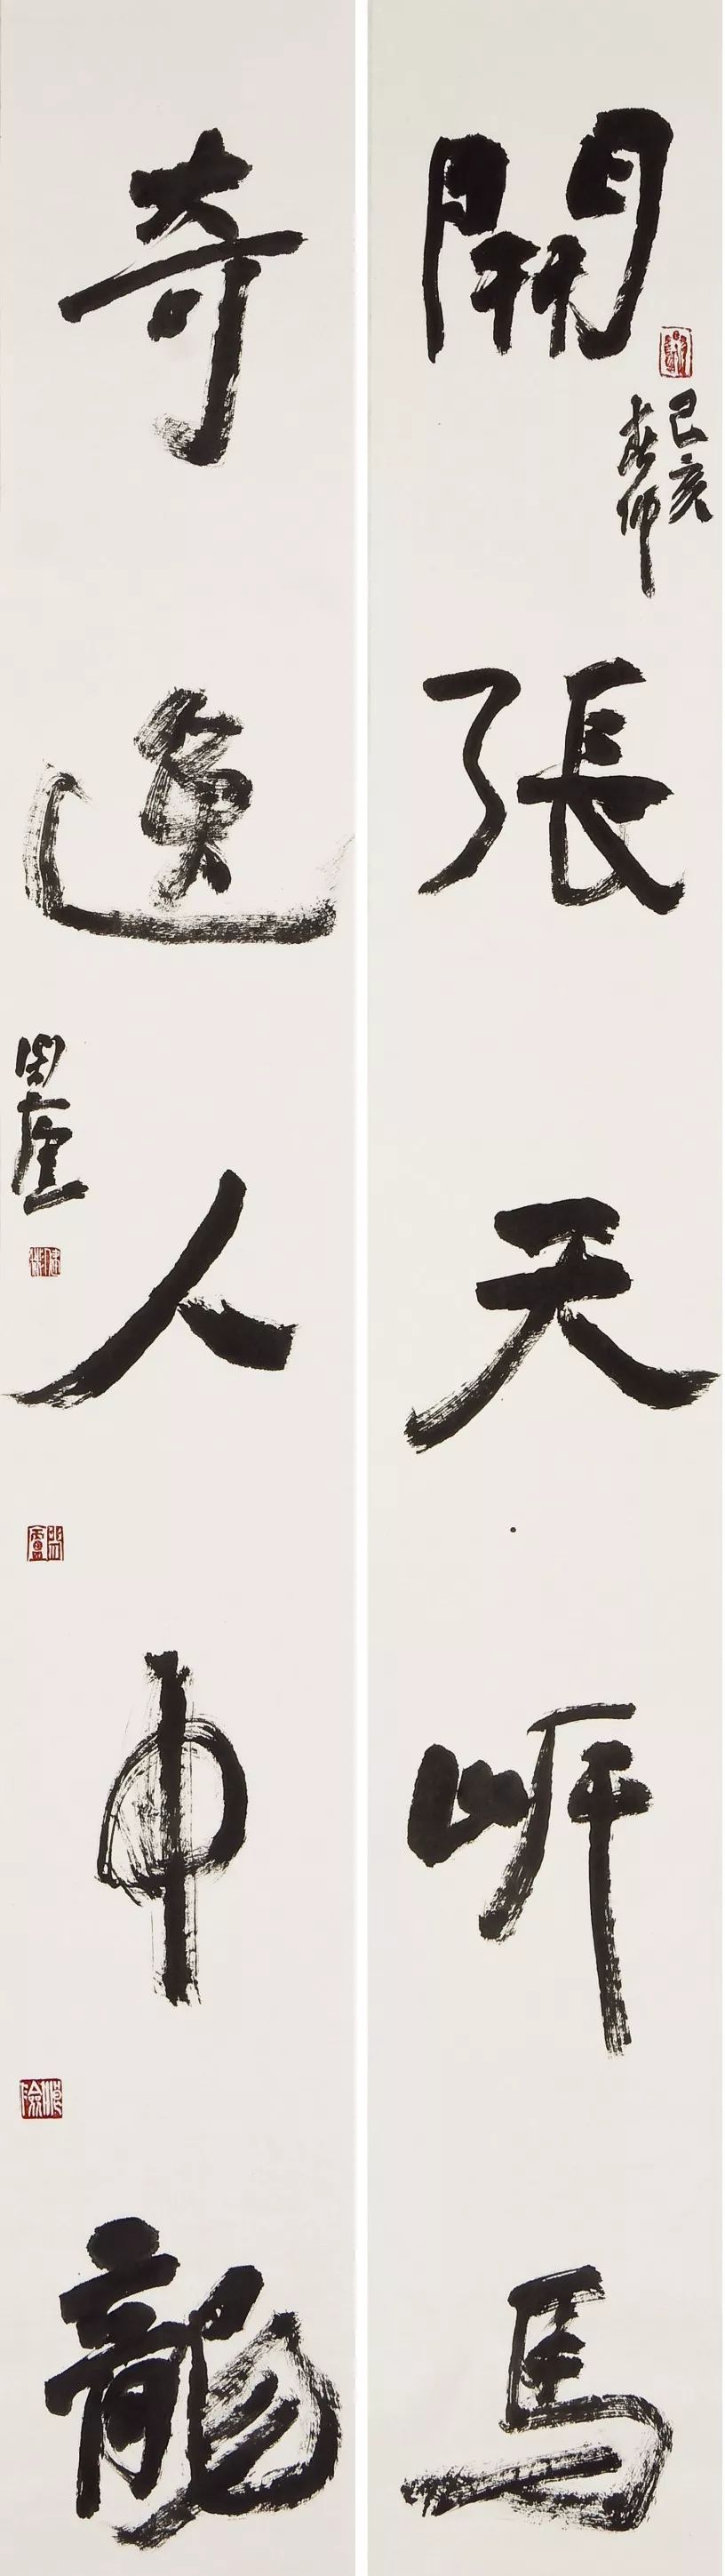 開張天岸馬
己亥
春仲
奇逸人中龍